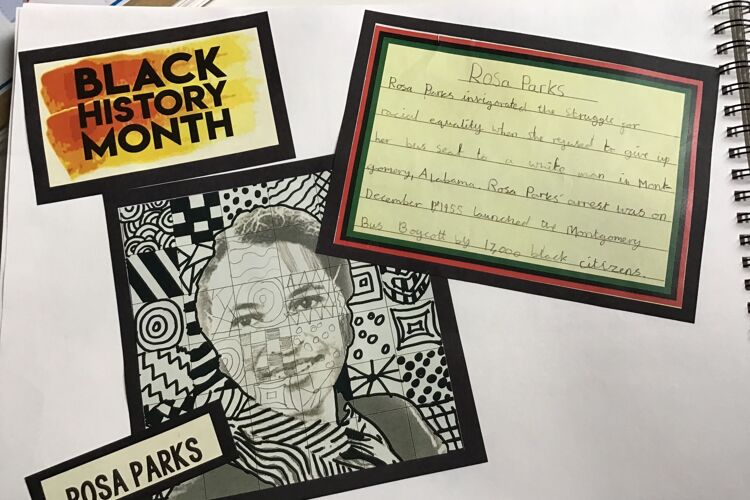 BLACK
HISTORY
MONTH
Rosa Parks
Rosa Parks invigorated the struggle for
racial equality when she refused to give up
her bus seat to a white man in Mont-
gomery, Alabama. Rosa Parks' arrest was on
December 1st 1955 launched the Montgomery
Bus Boycott by 17,000 black citizens.
ROSA PARKS